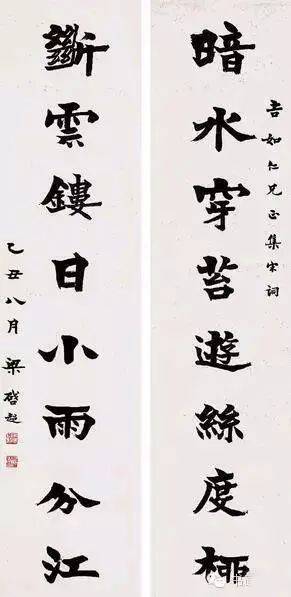 吉如仁兄正集宋詞
暗水穿苔遊絲度桺
斷雲鏤日小雨分江
乙丑八月梁啓超